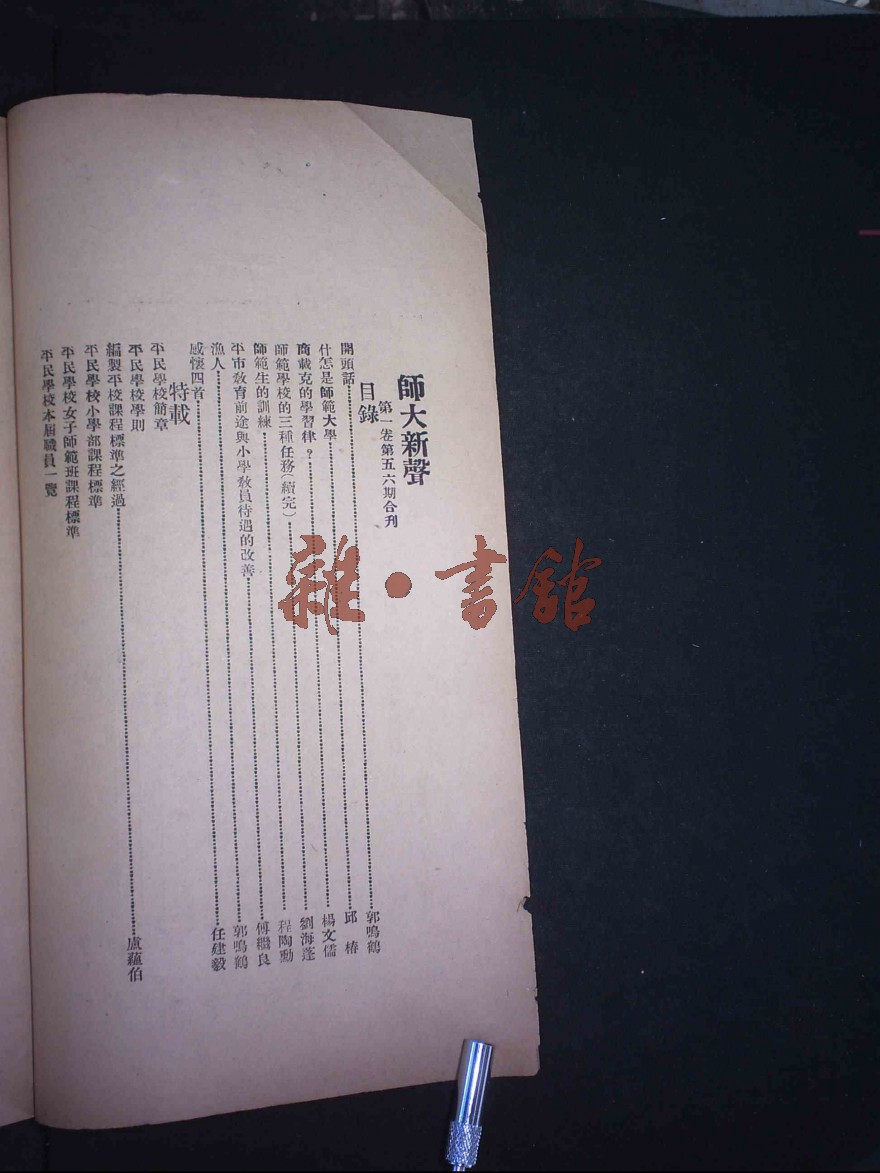 師大新聲
第一卷第五六期合刊
目錄
開頭話 郭鳴鶴
什怎是師範大學 邱椿
商戴克的學習律？ 楊文儒
師範學校的三種任務（續完） 劉海蓬
師範生的訓練 程陶勳
平市敎育前途與小學敎員待遇的改善 傅繼良
漁人 郭鳴鶴
感懷四首 任建毅
特載
平民學校簡章
平民學校學則
編製平校課程標準之經過 盧蘊伯
平民學校小學部課程標準
平民學校女子師範班課程標準
平民學校本屆職員一覽
雜·書館